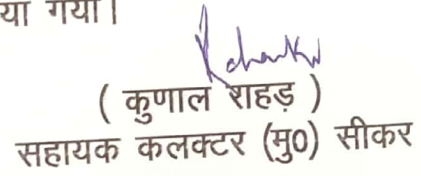 या गया।
( कुणाल राहड़ )
सहायक कलक्टर (मु0) सीकर